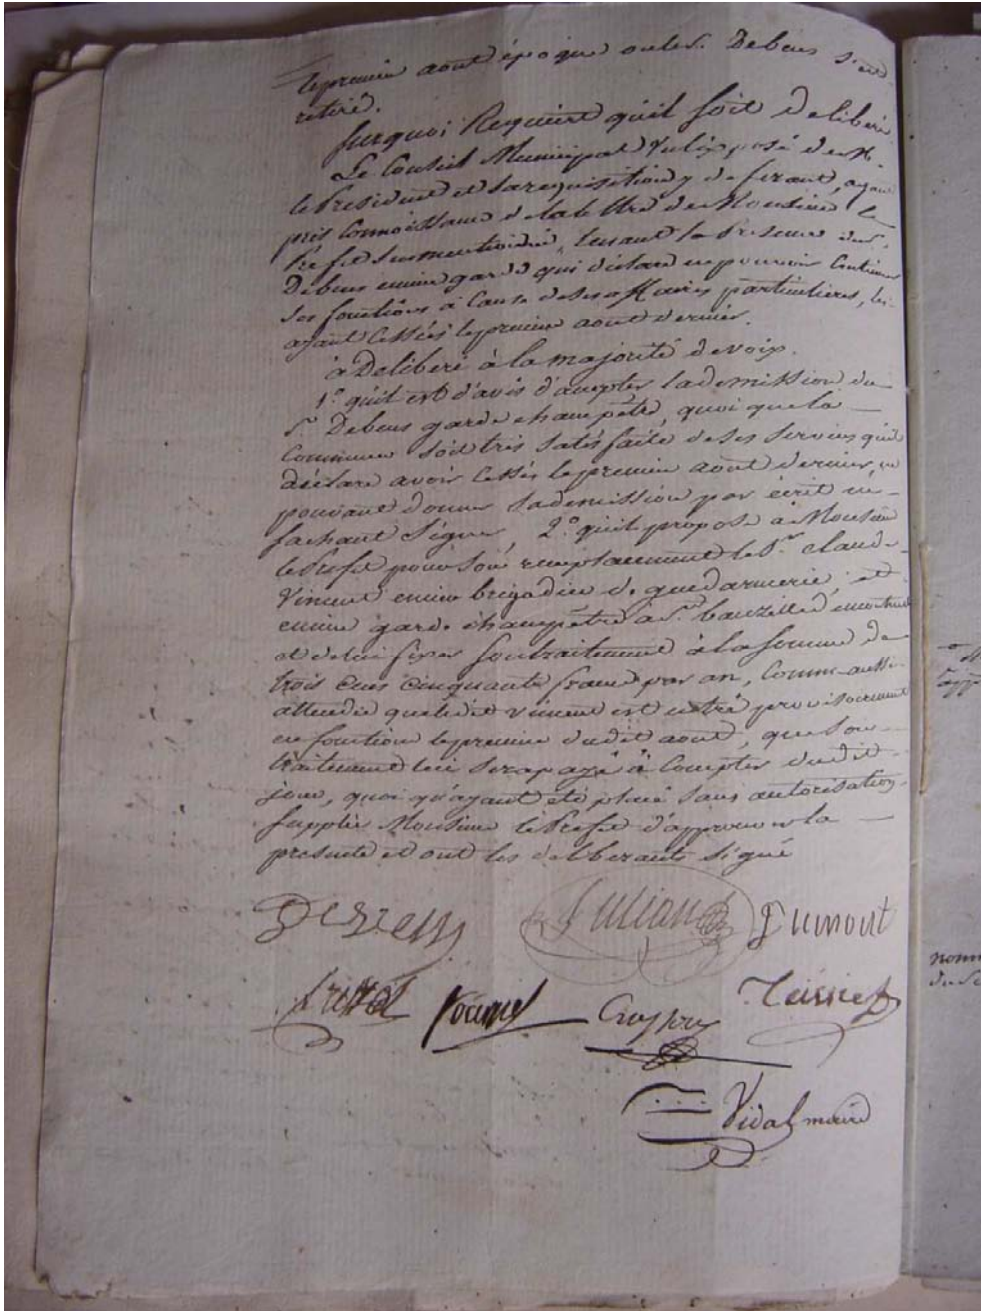 le premier aout époque ou le s.r Debeus s'est
retiré.
surquoi Requiert qu'il soit Deliberé
Le Conseil Municipal vu l'exposé de M.
le President et sa requisition y deferant, ayant
pris Connoissance de la lettre de Monsieur le
Prefet susmentionné, suivant la Presence du s.
Debeus ancien garde qui déclare ne pouvoir Continuer
ses fonctions à Cause de ses affaires particulieres, les
ayant Cessées le premier aout dernier.
à Deliberé à la majorité de voix.
1.° qu'il est d'avis d'accepter la demission du
S.r Debeus garde champêtre, quoi que la
Commune soit tres satisfaite de ses services qu'il
déclare avoir Cessés le premier aout dernier, ne
pouvant donner sa demission par écrit ne
sachant signer, 2.° qu'il propose à Monsieur
le Prefet pour son remplacement le S.r Claude
Vincent ancien brigadier de gendarmerie, et
ancien garde champêtre à S.t bauzille
et de lui fixer son traitement à la somme de
trois cens cinquante francs par an, Comme aussi
attendu que ledit vincent est entré provisoirement
en fonction le premier dudit aout, que son
traitement lui sera payé à Compter dudit
jour, quoi qu'ayant été placé sans autorisation
supplie Monsieur le Prefet d'approuver la
presente et ont les deliberants signé
Julian Dumont
Teissier
Vidal maire